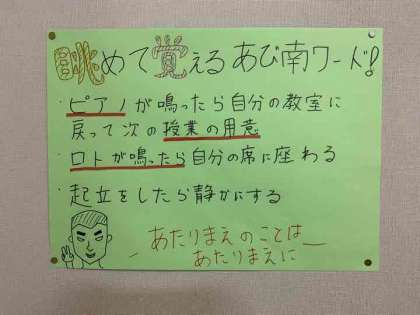 眺めて覚えるあび南ワード!
・ピアノが鳴ったら自分の教室に
戻って次の授業の用意
・ロトが鳴ったら自分の席に座わる
・起立をしたら静かにする
あたりまえのことは
あたりまえに